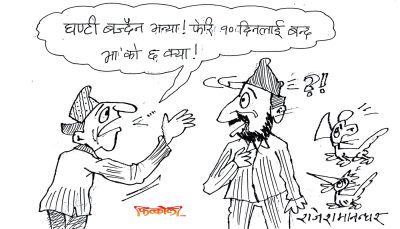 घण्टी बज्दैन भन्या! फेरि १० दिनलाई बन्द
भा'को छ क्या!
?!!
फित्कौली
राजेश मानन्धर